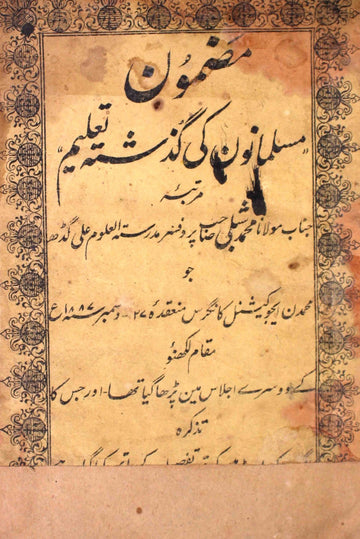 مضمون
"مسلمانون کی گذشتہ تعلیم"
مرتبۂ
جناب مولانا محمد شبلی صاحب پروفیسر مدرستہ العلوم علی گڈھ
جو
محمدن ایجوکیشنل کانگرس منعقدہ ۲۷۔ دسمبر سنہ ۱۸۸۷ع
مقام لکھنؤ
کے دوسرے اجلاس مین پڑھا گیا تھا۔ اور جس کا
تذکرہ